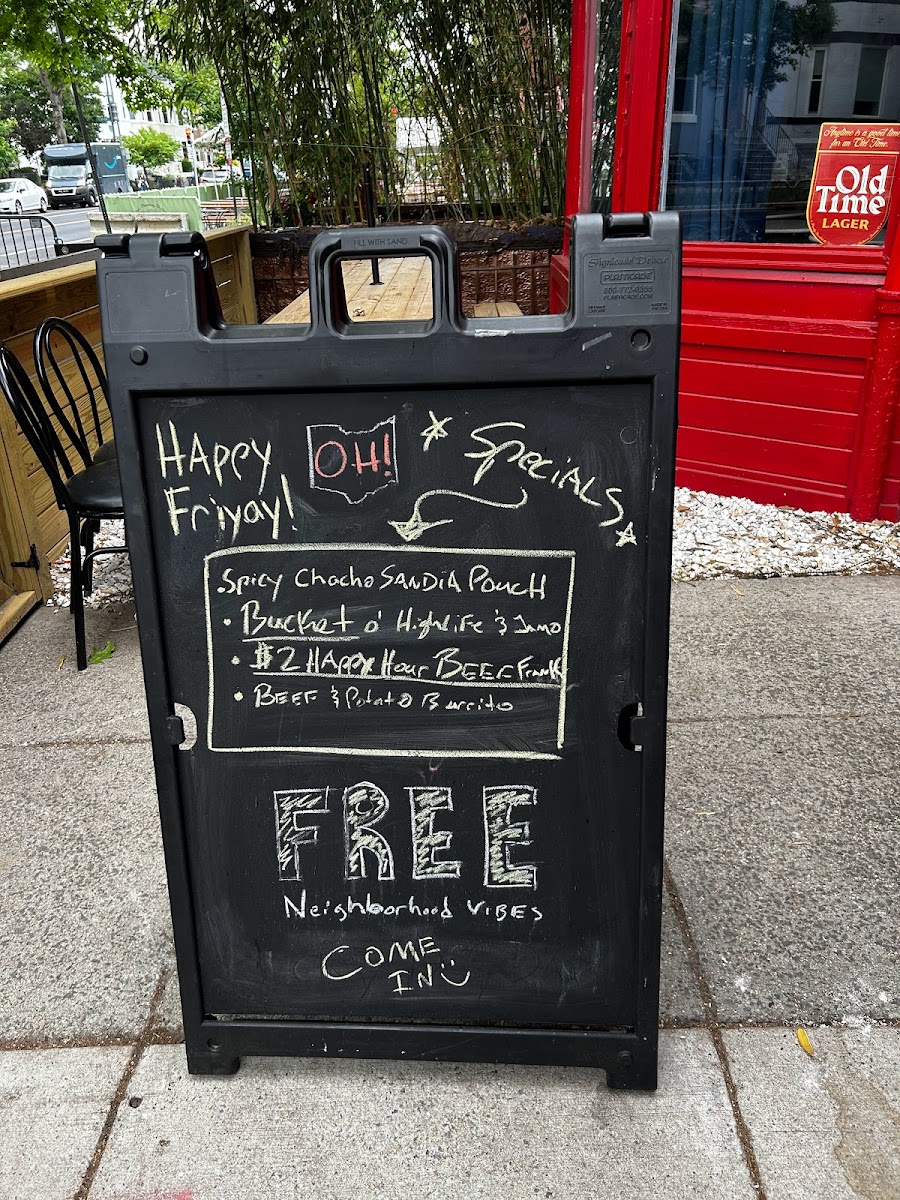 FILL WITH SAND
Signicade Deluxe
PLASTICADE
800-772-0355
PLASTICADE.COM
Anytime is a good time
for an Old Time.
Old
Time
LAGER
HAPPY
Friyay!
OH!
* SpeciALS *
.Spicy Chacho SANDiA PouCH
• Bucket o' HighLiFE & Jamo
• $2 HAPPY Hour BEEF Frank
• BEEF & Potato Burrito
FREE
Neighborhood VIBES
COME
IN